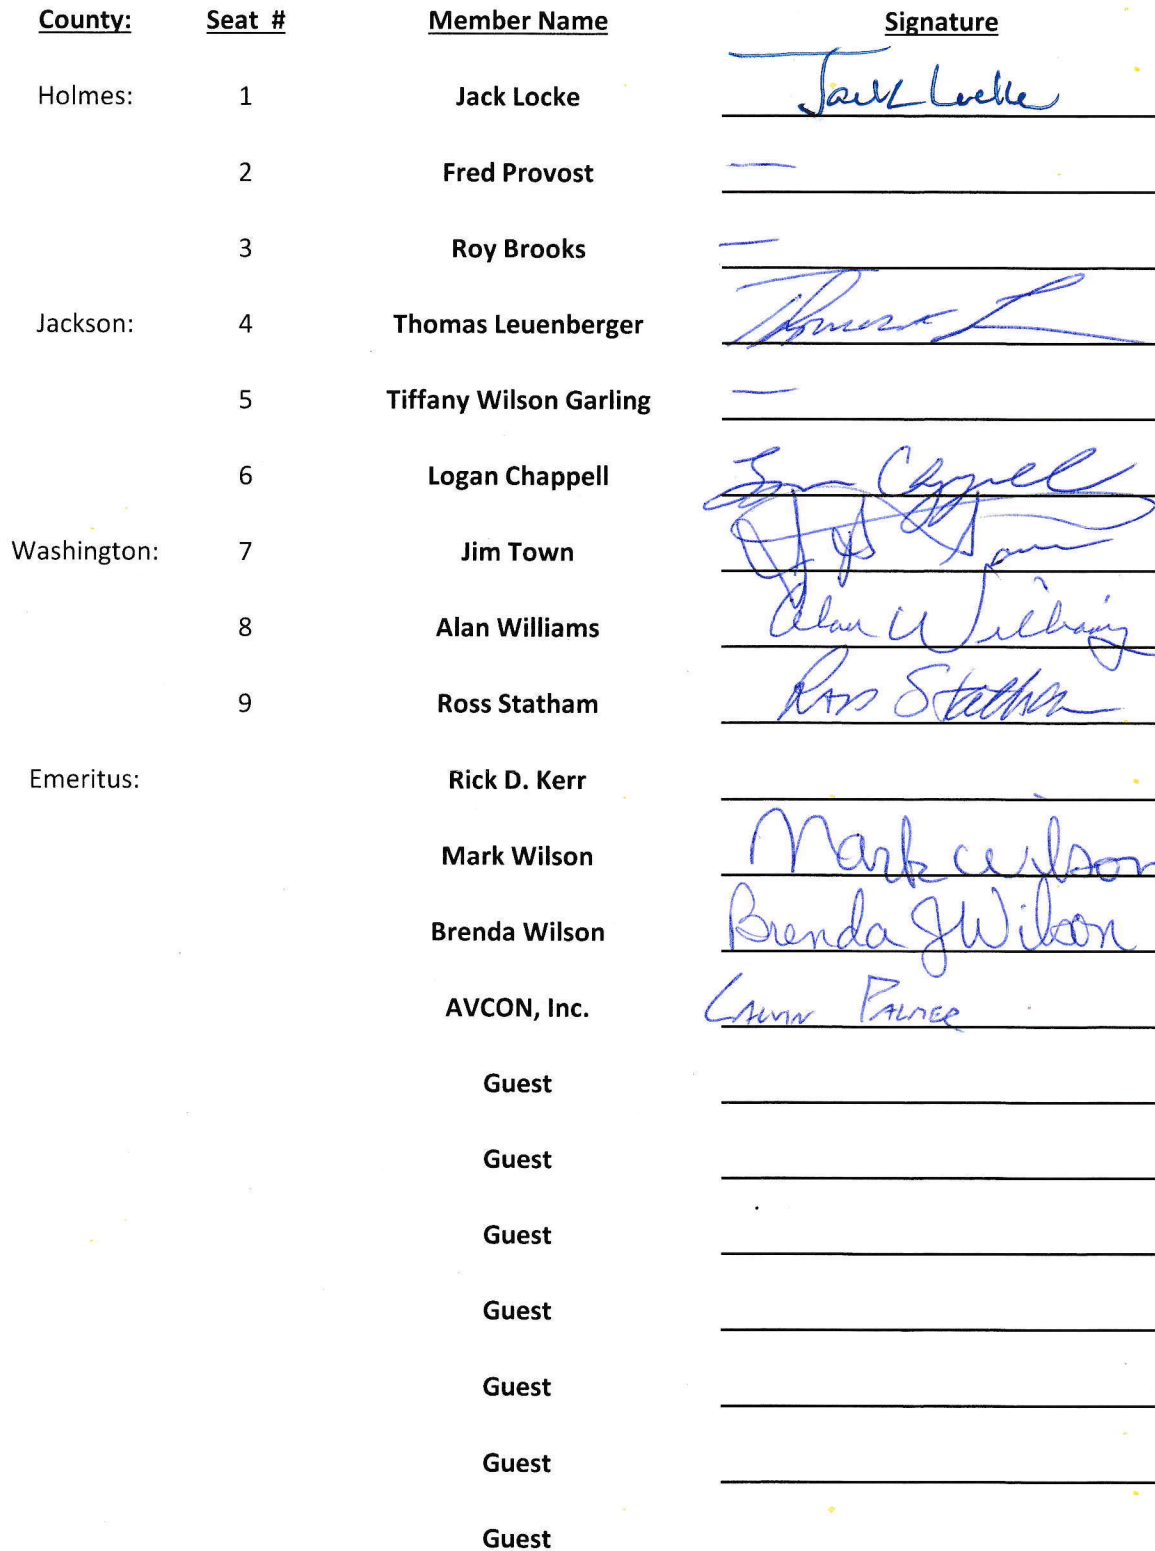 County: Seat # Member Name Signature
Holmes: 1 Jack Locke Jack Locke
2 Fred Provost —
3 Roy Brooks —
Jackson: 4 Thomas Leuenberger Thomas L
5 Tiffany Wilson Garling —
6 Logan Chappell Logan Chappell
Washington: 7 Jim Town Town
8 Alan Williams Alan Williams
9 Ross Statham Ross Statham
Emeritus: Rick D. Kerr
Mark Wilson Mark Wilson
Brenda Wilson Brenda J Wilson
AVCON, Inc. Palmer
Guest
Guest
Guest
Guest
Guest
Guest
Guest